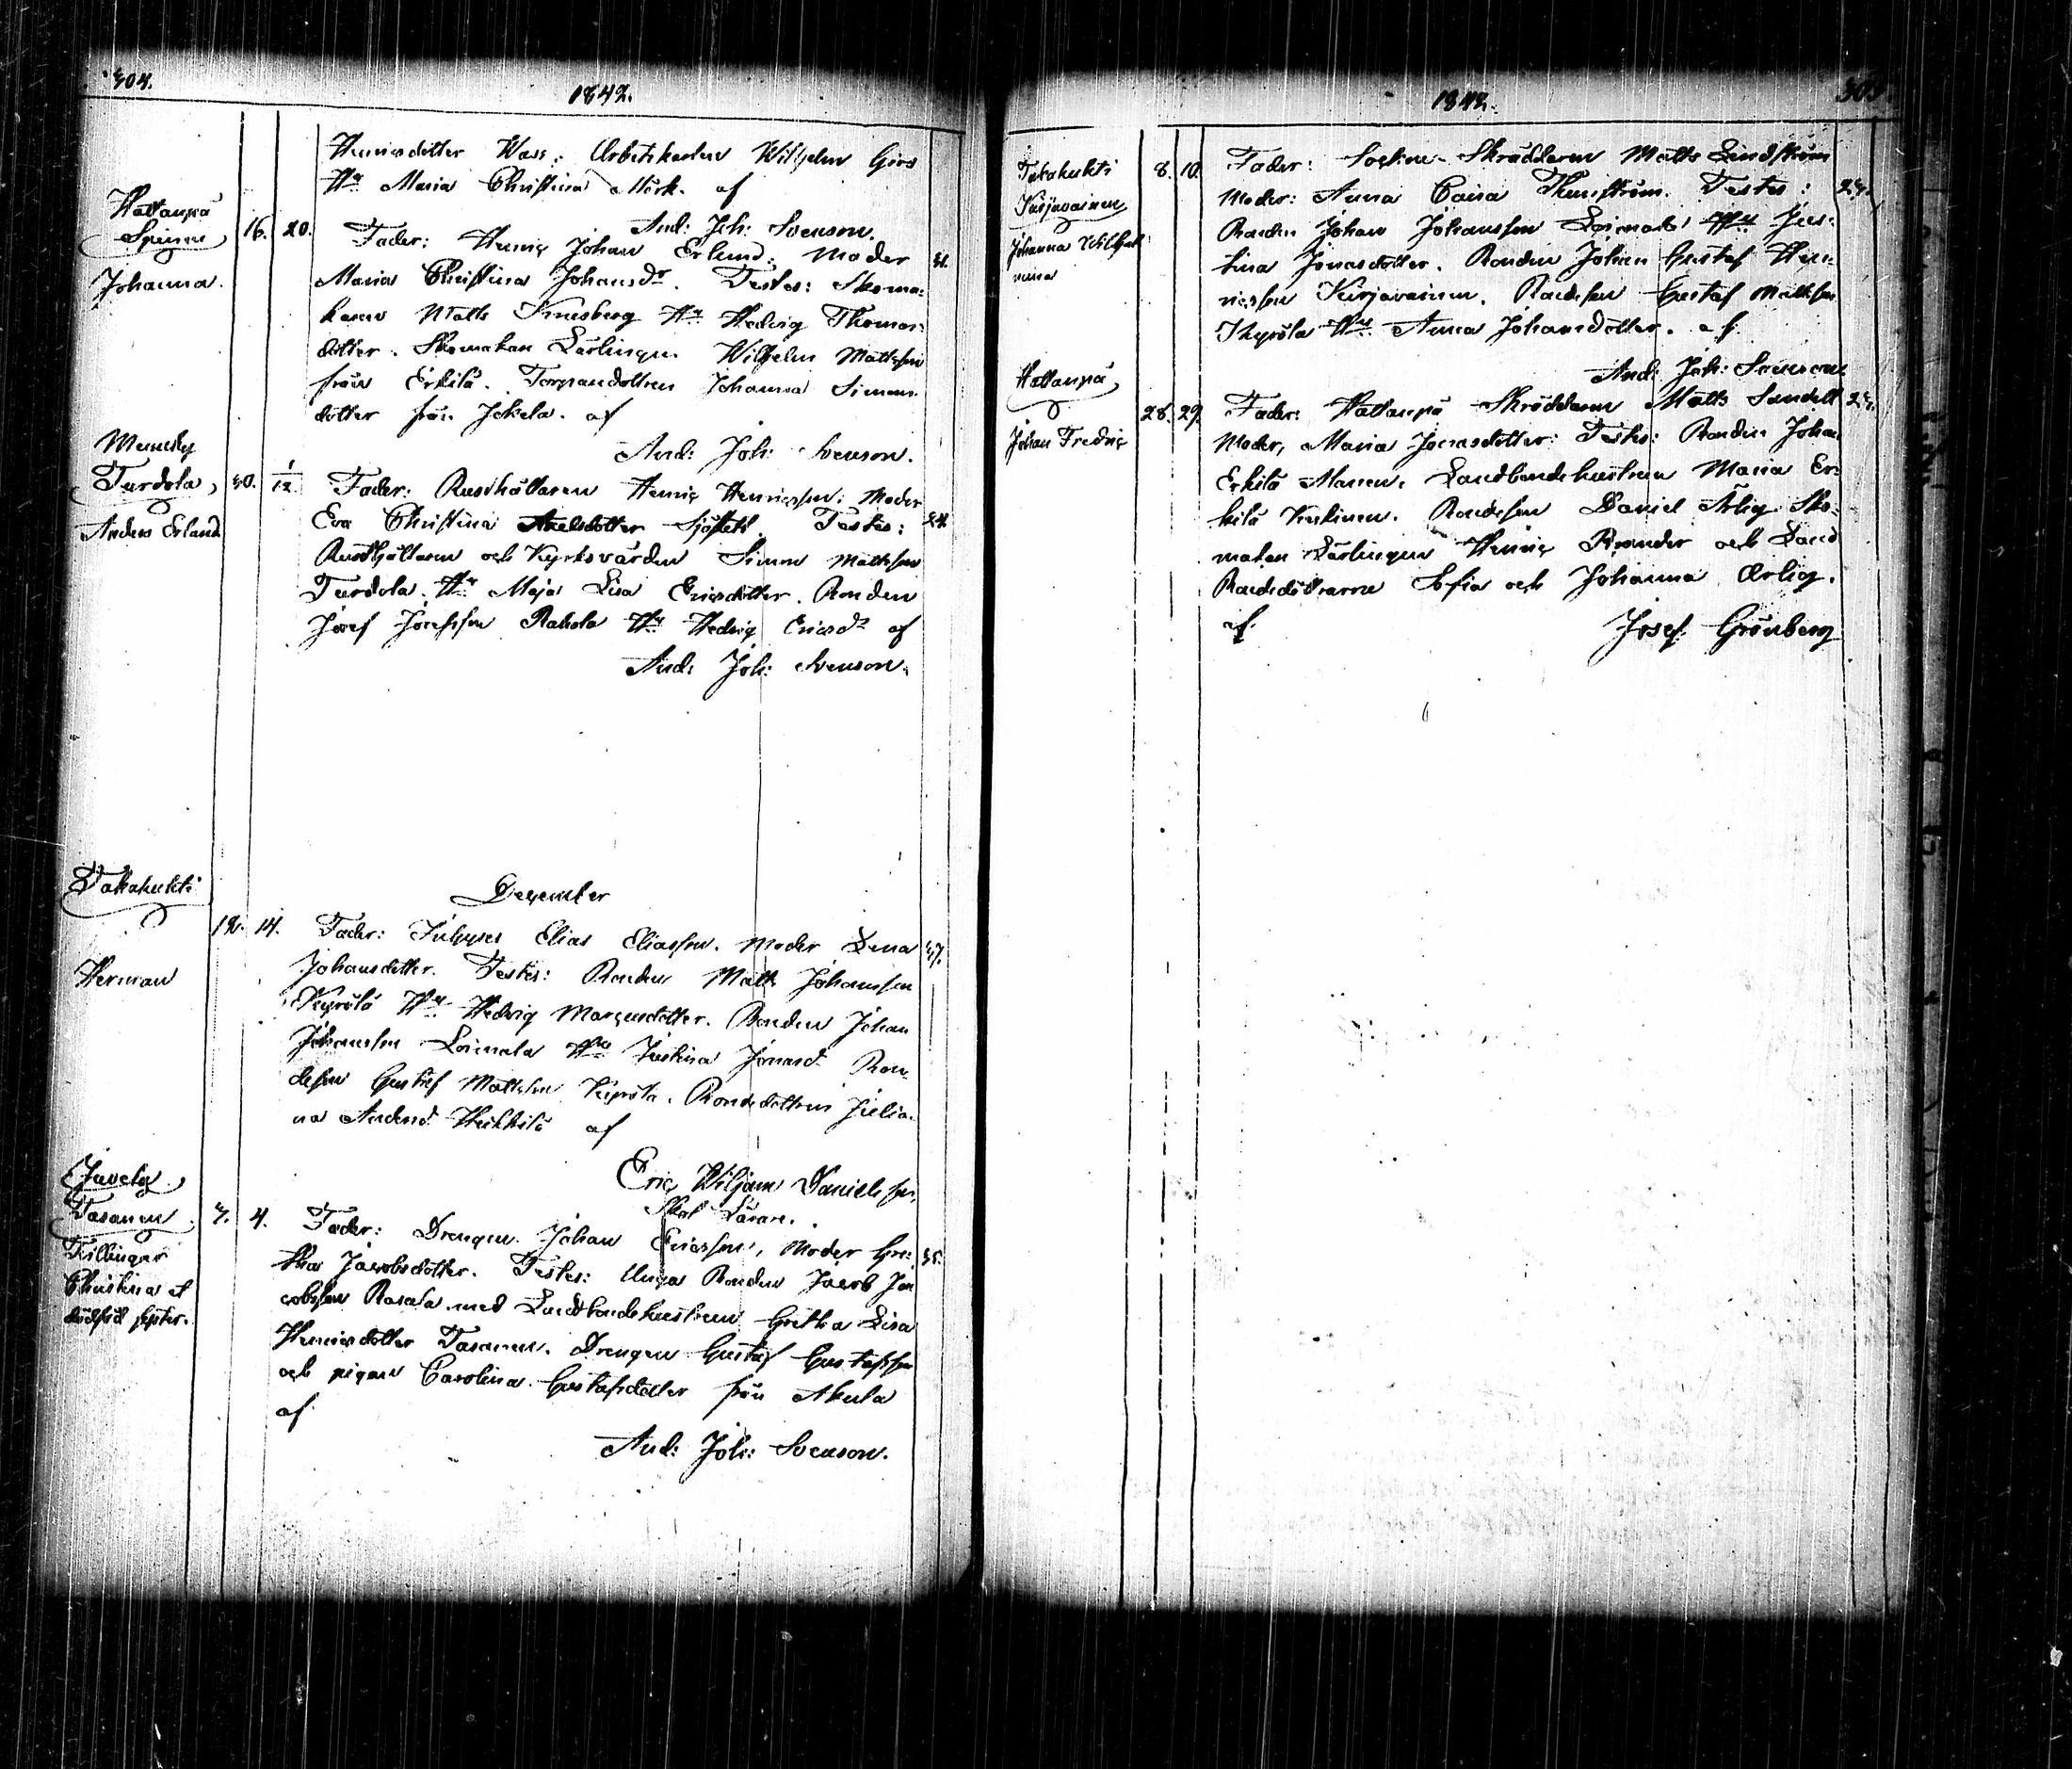 304.
1842.
Henricsdotter Wass: Arbetskarlen Wilhelm Girs
Hu Maria Christina Mörk. af
And: Joh: Svenson.
Hattanpä
Spinnu
Johanna.
16. 20. Fader: Henric Johan Erlund: Moder 31.
Maria Christina Johansdr. Testes: Skoma-
karen Matts Hu Hedvig Thomas-
dotter. Skomakare Lärlingen Wilhelm Mattsson
från Erkilä. Torparedottren Johanna Simons-
dotter från Jokela. af
And: Joh: Svenson.
Turdola,
Anders Erland
30. 1/12. Fader: Rusthållaren Henric Henricsson: Moder
Eva Christina Axelsdotter Sjöstedt. Testes: 24.
Rusthållaren och Kyrkovärden Simon Mattsson
Turdola. Hu Maja Lisa Ericsdotter. Bonden
Josef Josefsson Rahola Hu Hedvig Ericsdr af
And: Joh: Svenson.
December
Takahuhti
Herman
12. 14. Fader: Inhyses Elias Eliasson. Moder Lena 37.
Johansdotter. Testes: Bonden Matts Johansson
Kyrölä Hu Hedvig Marcusdotter. Bonden Johan
Johansson Loimala Hu Justina Jonasd. Bon-
desson Gustaf Mattsson Kyrölä. Bondedottren Julia-
na Andersd. Heikkilä af
Eric Wiljam Danielsson,
Skol Lärare.
Juvela,
Tasanen
Tvillingar
Christina et
dödfödd syster.
3. 4. Fader: Drengen Johan Ericsson, Moder Gre- 35.
tha Jacobsdotter. Testes: Unga Bonden Jacob Ja-
cobsson Rasala med Landbondehustrun Gretha Lisa
Henricsdotter Tasanen. Drengen Gustaf Gustafsson
och pigan Carolina Gustafsdotter från Akula
af
And: Joh: Svenson.
1842.
305
Takahuhti
Kirjavainen
Johanna Wilhel-
mina
8. 10. Fader: Sockne-Skräddaren Matts Lindström
Moder: Anna Caisa Thunström. Testes: 24.
Bonden Johan Johansson Loimala Hu Jus-
tina Jonasdotter. Bonden Johan Gustaf Hen-
ricsson Kirjavainen. Bondeson Gustaf Mattsson
Kyrölä Hu Anna Johansdotter. af.
And: Joh: Svenson
Hattanpä
Johan Fredric
28. 29. Fader: Hattanpä Skräddaren Matts Sandell
Moder, Maria Jonasdotter: Testes: Bonden Johan
Erkilä Mannen. Landbondehustrun Maria Er-
kilä Keskinen. Bondeson Daniel Ärlig Sko-
makare Lärlingen Henric och Land
Bondedöttrarne Sofia och Johanna Ærlig.
af.
Josef: Grönberg